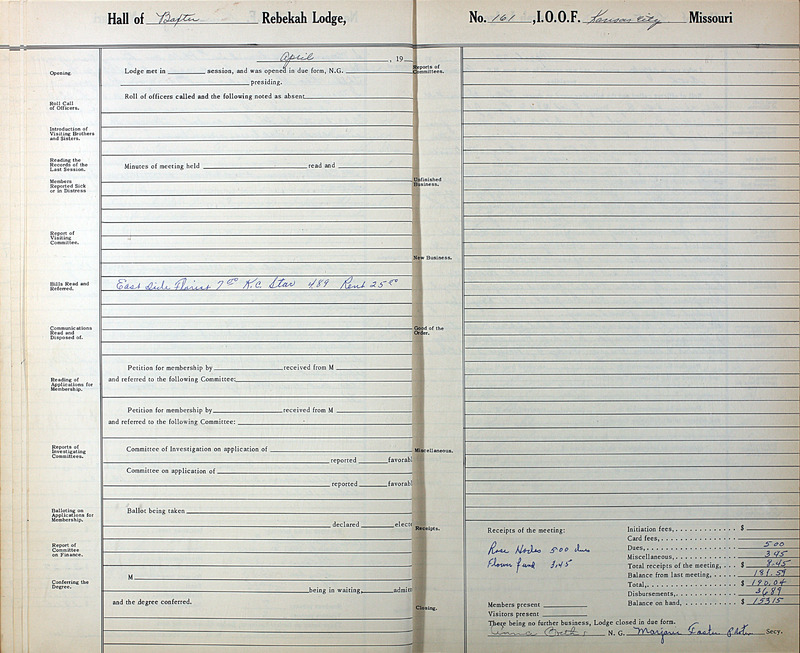 Hall of Baxter Rebekah Lodge,
No. 161 , I.O.O.F. Kansas City Missouri
April , 19
Opening.
Lodge met in session, and was opened in due form, N.G.
presiding.
Roll Call
of Officers.
Roll of officers called and the following noted as absent
Introduction of
Visiting Brothers
and Sisters.
Reading the
Records of the
Last Session.
Minutes of meeting held read and
Members
Reported Sick
or in Distress
Report of
Visiting
Committee.
Bills Read and
Referred.
East Side Florist 7 00 K.C. Star 489 Rent 25 00
Communications
Read and
Disposed of.
Petition for membership by received from M
Reading of
Applications for
Membership.
and referred to the following Committee:
Petition for membership by received from M
and referred to the following Committee:
Reports of
Investigating
Committees.
Committee of Investigation on application of
reported favorabl
Committee on application of
reported favorabl
Balloting on
Applications for
Membership.
Ballot being taken
declared electe
Report of
Committee
on Finance.
M
Conferring the
Degree.
being in waiting, admitt
and the degree conferred.
Reports of
Committees.
Unfinished
Business.
New Business.
Good of the
Order.
Miscellaneous.
Receipts.
Receipts of the meeting:
Rose 5 00 dues
Flower fund 3.45
Initiation fees, $
Card fees,
Dues, 5 00
Miscellaneous, 3 45
Total receipts of the meeting, $ 8.45
Balance from last meeting, 181.59
Total, $ 190.04
Disbursements, 36 89
Balance on hand, $ 153 15
Closing.
Members present
Visitors present
There being no further business, Lodge closed in due form.
N. G. Marjorie Secy.